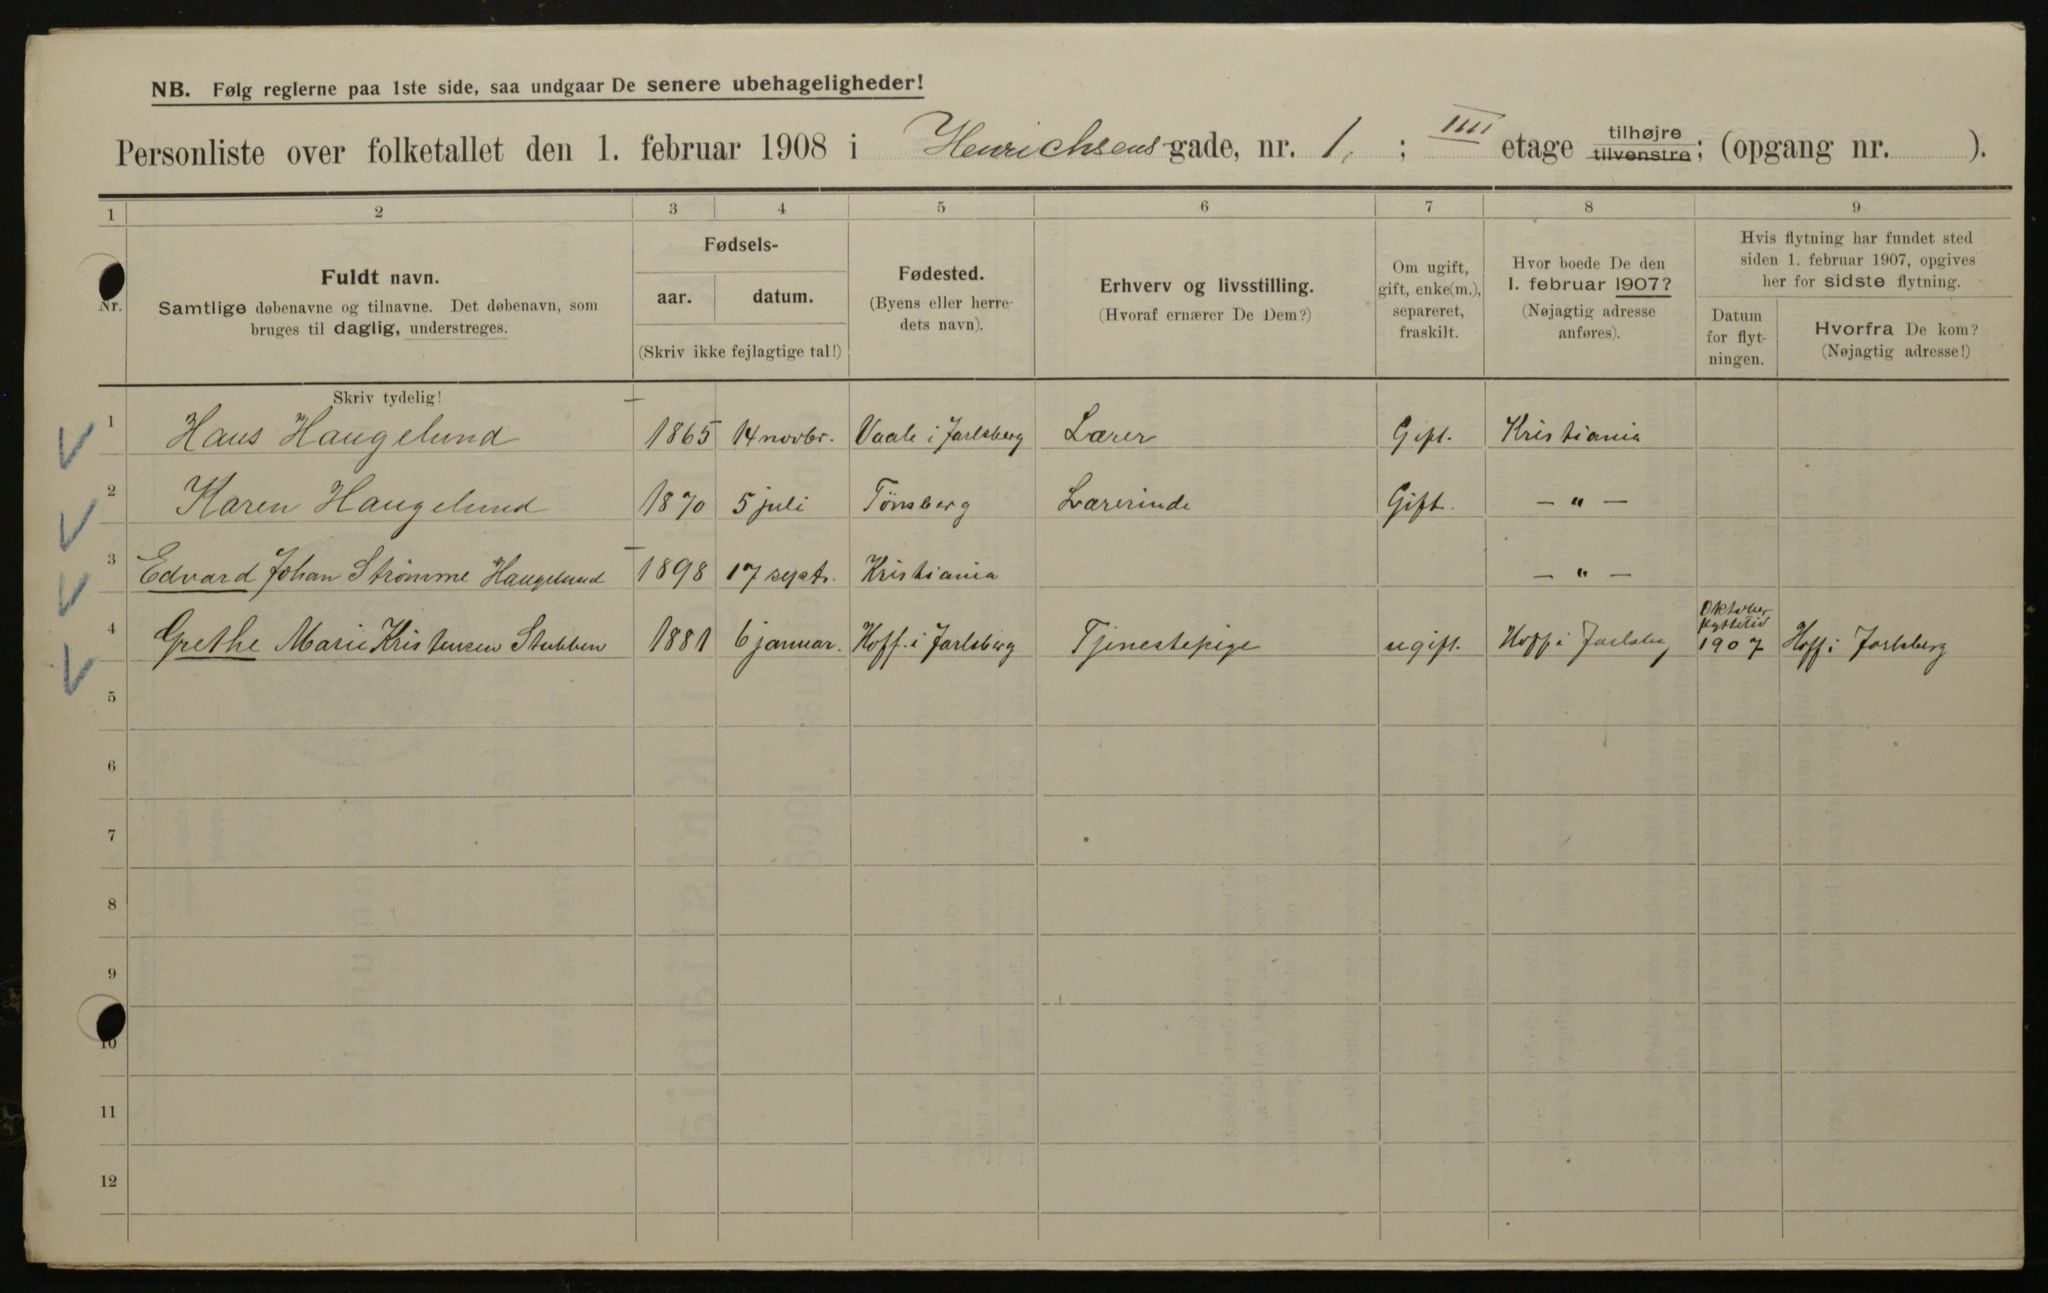 NB. Følg reglerne paa 1ste side, saa undgaar De senere ubehageligheder!
Personliste over folketallet den 1. februar 1908 i Henrichsens gade, nr. 1, ; IIII etage tilhøjre tilvenstre; (opgang nr. ).
1 2 3 4 5 6 7 8 9
Nr.
Fuldt navn.
Samtlige døbenavne og tilnavne. Det døbenavn, som
bruges til daglig, understreges.
Skriv tydelig!
Fødsels-
aar. datum.
(Skriv ikke fejlagtige tal!)
Fødested.
(Byens eller herre-
dets navn).
Erhverv og livsstilling.
(Hvoraf ernærer De Dem?)
Om ugift,
gift, enke(m.),
separeret,
fraskilt.
Hvor boede De den
1. februar 1907?
(Nøjagtig adresse
anføres).
Hvis flytning har fundet sted
siden 1. februar 1907, opgives
her for sidste flytning.
Datum
for flyt-
ningen.
Hvorfra De kom?
(Nøjagtig adresse!)
1 Hans Haugelund 1865 14 novbr. Vaale i Jarlsberg Lærer Gift. Kristiania
2 Karen Haugelund 1870 5 juli Tønsberg Lærerinde Gift. — " —
3 Edvard Johan Strømme Haugelund 1898 17 septr. Kristiania — " —
4 Grethe Marie Kristensen Stubben 1881 6 januar. Hoff. i Jarlsberg Tjenestepige ugift. Hoff i Jarlsberg Oktober flyttetid 1907 Hoff i Jarlsberg
5
6
7
8
9
10
11
12